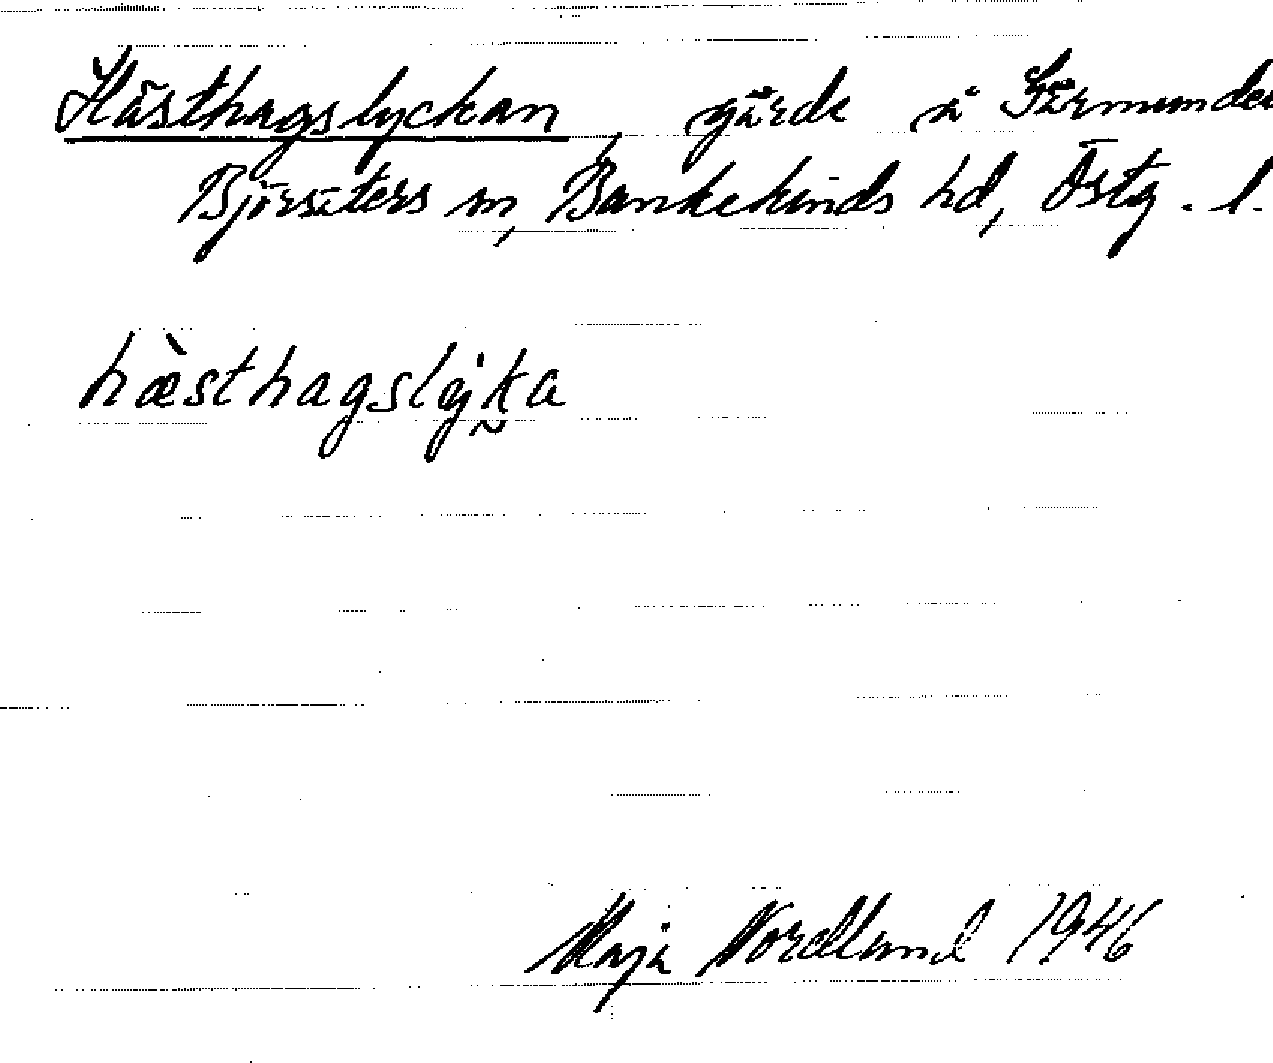 Hästhagslyckan gärde å Särmunde
Björsäters sn, Bankekinds hd, Östg. l.
hæ̀sthagslyk̰a
Maja Nordlund 1946